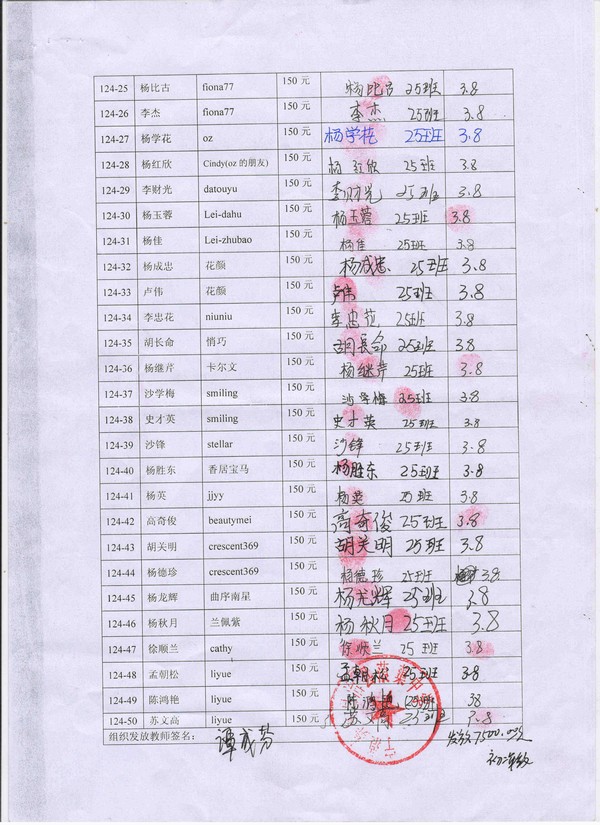 124-25 杨比古 fiona77 150 元 杨比古 25班 3.8
124-26 李杰 fiona77 150 元 李杰 25班 3.8
124-27 杨学花 oz 150 元 杨学花 25班 3.8
124-28 杨红欣 Cindy(oz 的朋友) 150 元 杨红欣 25班 3.8
124-29 李财光 datouyu 150 元 李财光 25班 3.8
124-30 杨玉蓉 Lei-dahu 150 元 杨玉蓉 25班 3.8
124-31 杨佳 Lei-zhubao 150 元 杨佳 25班 3.8
124-32 杨成忠 花颜 150 元 杨成忠 25班 3.8
124-33 卢伟 花颜 150 元 卢伟 25班 3.8
124-34 李忠花 niuniu 150 元 李忠花 25班 3.8
124-35 胡长命 悄巧 150 元 胡长命 25班 3.8
124-36 杨继芹 卡尔文 150 元 杨继芹 25班 3.8
124-37 沙学梅 smiling 150 元 沙学梅 25班 3.8
124-38 史才英 smiling 150 元 史才英 25班 3.8
124-39 沙锋 stellar 150 元 沙锋 25班 3.8
124-40 杨胜东 香居宝马 150 元 杨胜东 25班 3.8
124-41 杨英 jjyy 150 元 杨英 25班 3.8
124-42 高奇俊 beautymei 150 元 高奇俊 25班 3.8
124-43 胡关明 crescent369 150 元 胡关明 25班 3.8
124-44 杨德珍 crescent369 150 元 杨德珍 25班 3.8
124-45 杨龙辉 曲序南星 150 元 杨龙辉 25班 3.8
124-46 杨秋月 兰佩紫 150 元 杨秋月 25班 3.8
124-47 徐顺兰 cathy 150 元 徐顺兰 25班 3.8
124-48 孟朝松 liyue 150 元 孟朝松 25班 3.8
124-49 陈鸿艳 liyue 150 元 陈鸿艳 25班 38
124-50 苏文高 liyue 150 元 苏文高 25班 3.8
组织发放教师签名： 谭成芬 发放7500.00元